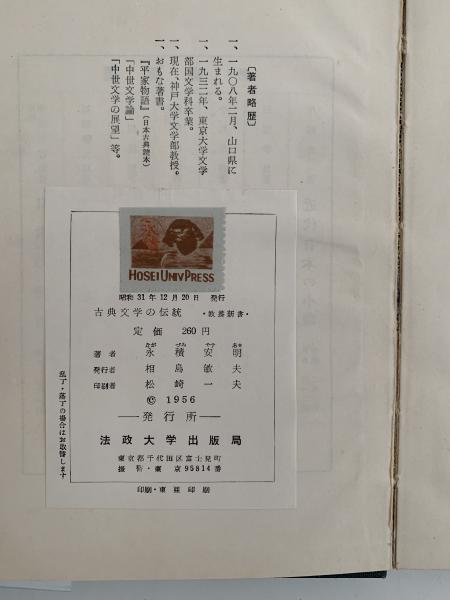 〔著者略歴〕
一、一九〇八年二月、山口県に
生まれる。
一、一九三二年、東京大学文学
部国文学科卒業。
一、現在、神戸大学文学部教授。
一、おもな著書。
『平家物語』（日本古典読本）
「中世文学論」
「中世文学の展望」等。
HOSEI UNIV PRESS
昭和31年12月20日 発行
古典文学の伝統 ・教養新書・
定価 260円
なが づみ やす あき
著者 永積安明
発行者 相島敏夫
印刷者 松崎一夫
© 1956
発行所
法政大学出版局
東京都千代田区富士見町
振替・東京95814番
印刷・東亜印刷
乱丁・落丁の場合はお取替します